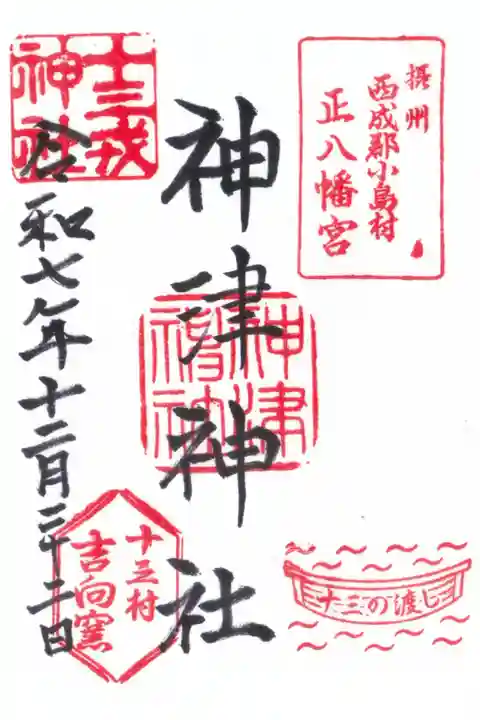 摂州
西成郡小島村
正八幡宮
神津神社
神津
神社
十三戎
神社
令和七年十二月二十二日
十三村
吉向窯
十三の渡し